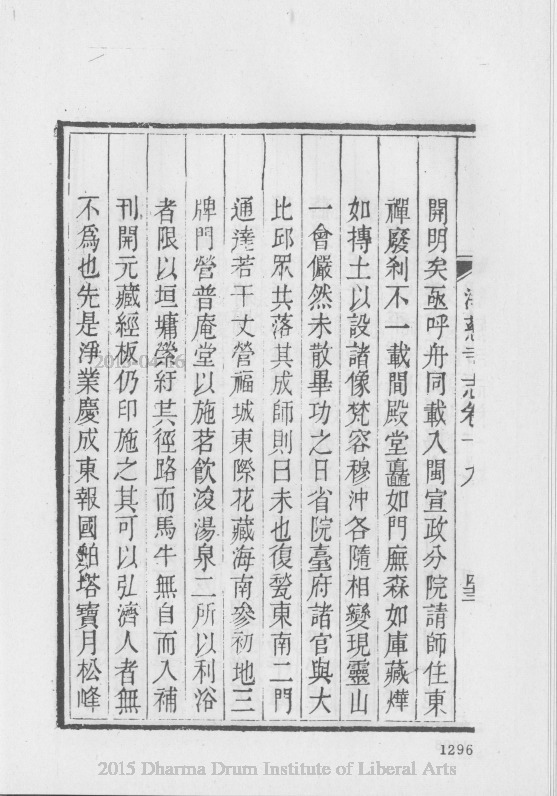 淨慈寺志卷十九
開明矣亟呼舟同載入閩宣政分院請師住東
禪廢剎不一載間殿堂矗如門廡森如庫藏燁
如摶土以設諸像梵容穆沖各隨相變現靈山
一會儼然未散畢功之日省院臺府諸官與大
比邱眾共落其成師則曰未也復甃東南二門
通達若干丈營福城東際花藏海南參初地三
牌門營普庵堂以施茗飲浚湯泉二所以利浴
者限以垣墉縈紆其徑路而馬牛無自而入補
刊開元藏經板仍印施之其可以弘濟人者無
不為也先是淨業慶成東報國鉑塔寶月松峰
1296
2015 Dharma Drum Institute of Liberal Arts